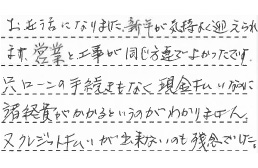 お世話になりました。新年が気持よく迎えられ
ます。営業と工事が同じ方達でよかったです。
只ローンの手続きもなく現金払い なのに
諸経費がかかるというのがわかりません。
又クレジット払いが出来ないのも残念でした。